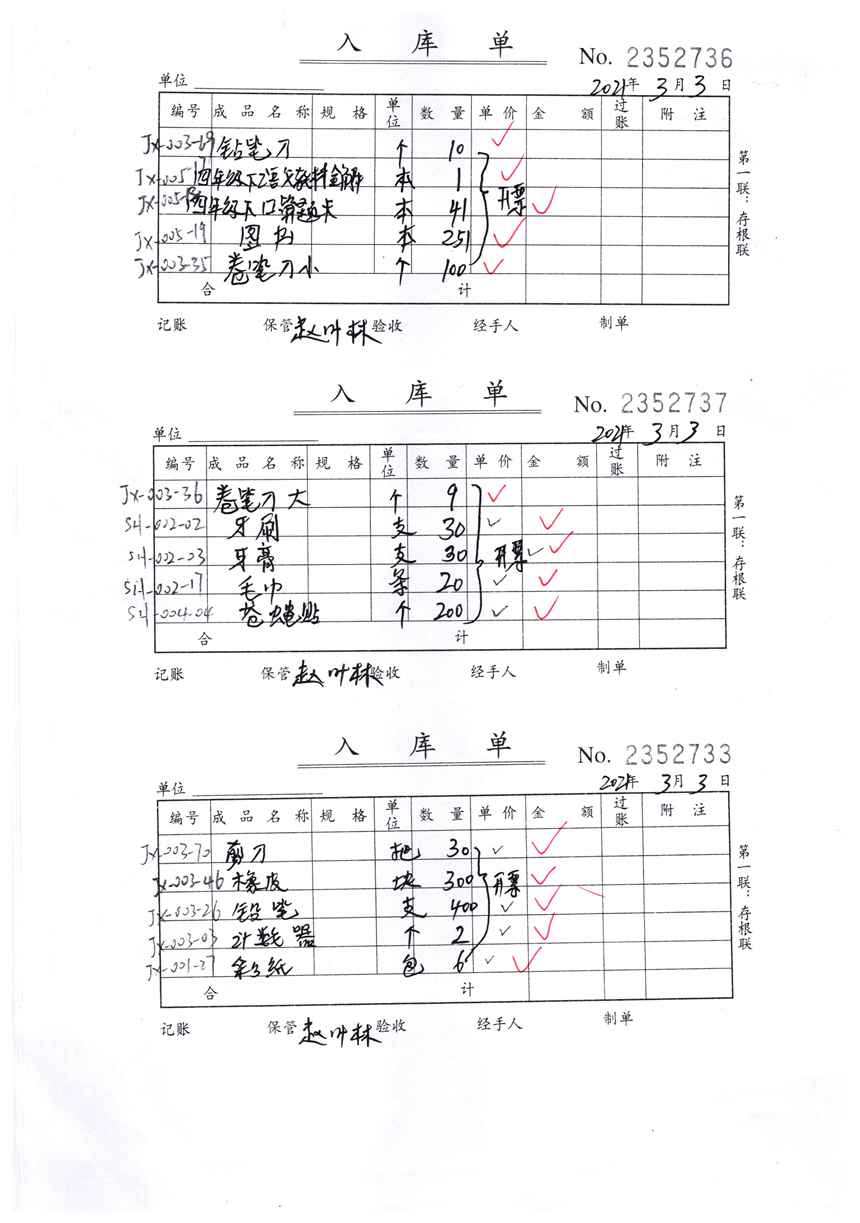 入 库 单 No. 2352736
单位 2021年 3月 3日
编号 成品名称 规格 单位 数量 单价 金额 过账 附注
JX-003-69 钻笔刀 个 10
JX-005 四年级下语文教材全解 本 1
JX-005 四年级下口算题卡 本 41 开票
JX-005-19 图书 本 251
JX-003-35 卷笔刀小 个 100
合 计
第一联：存根联
记账 保管 赵叶林 验收 经手人 制单
入 库 单 No. 2352737
单位 2021年 3月 3日
编号 成品名称 规格 单位 数量 单价 金额 过账 附注
JX-003-36 卷笔刀大 个 9
SH-002-02 牙刷 支 30
SH-002-03 牙膏 支 30 开票
SH-002-17 毛巾 条 20
SH-004-04 苍蝇贴 个 200
合 计
第一联：存根联
记账 保管 赵叶林 验收 经手人 制单
入 库 单 No. 2352733
单位 2021年 3月 3日
编号 成品名称 规格 单位 数量 单价 金额 过账 附注
JX-003-70 剪刀 把 30
JX-003-46 橡皮 块 300 开票
JX-003-26 铅笔 支 400
JX-003-03 计数器 个 2
JX-001-27 彩纸 包 6
合 计
第一联：存根联
记账 保管 赵叶林 验收 经手人 制单